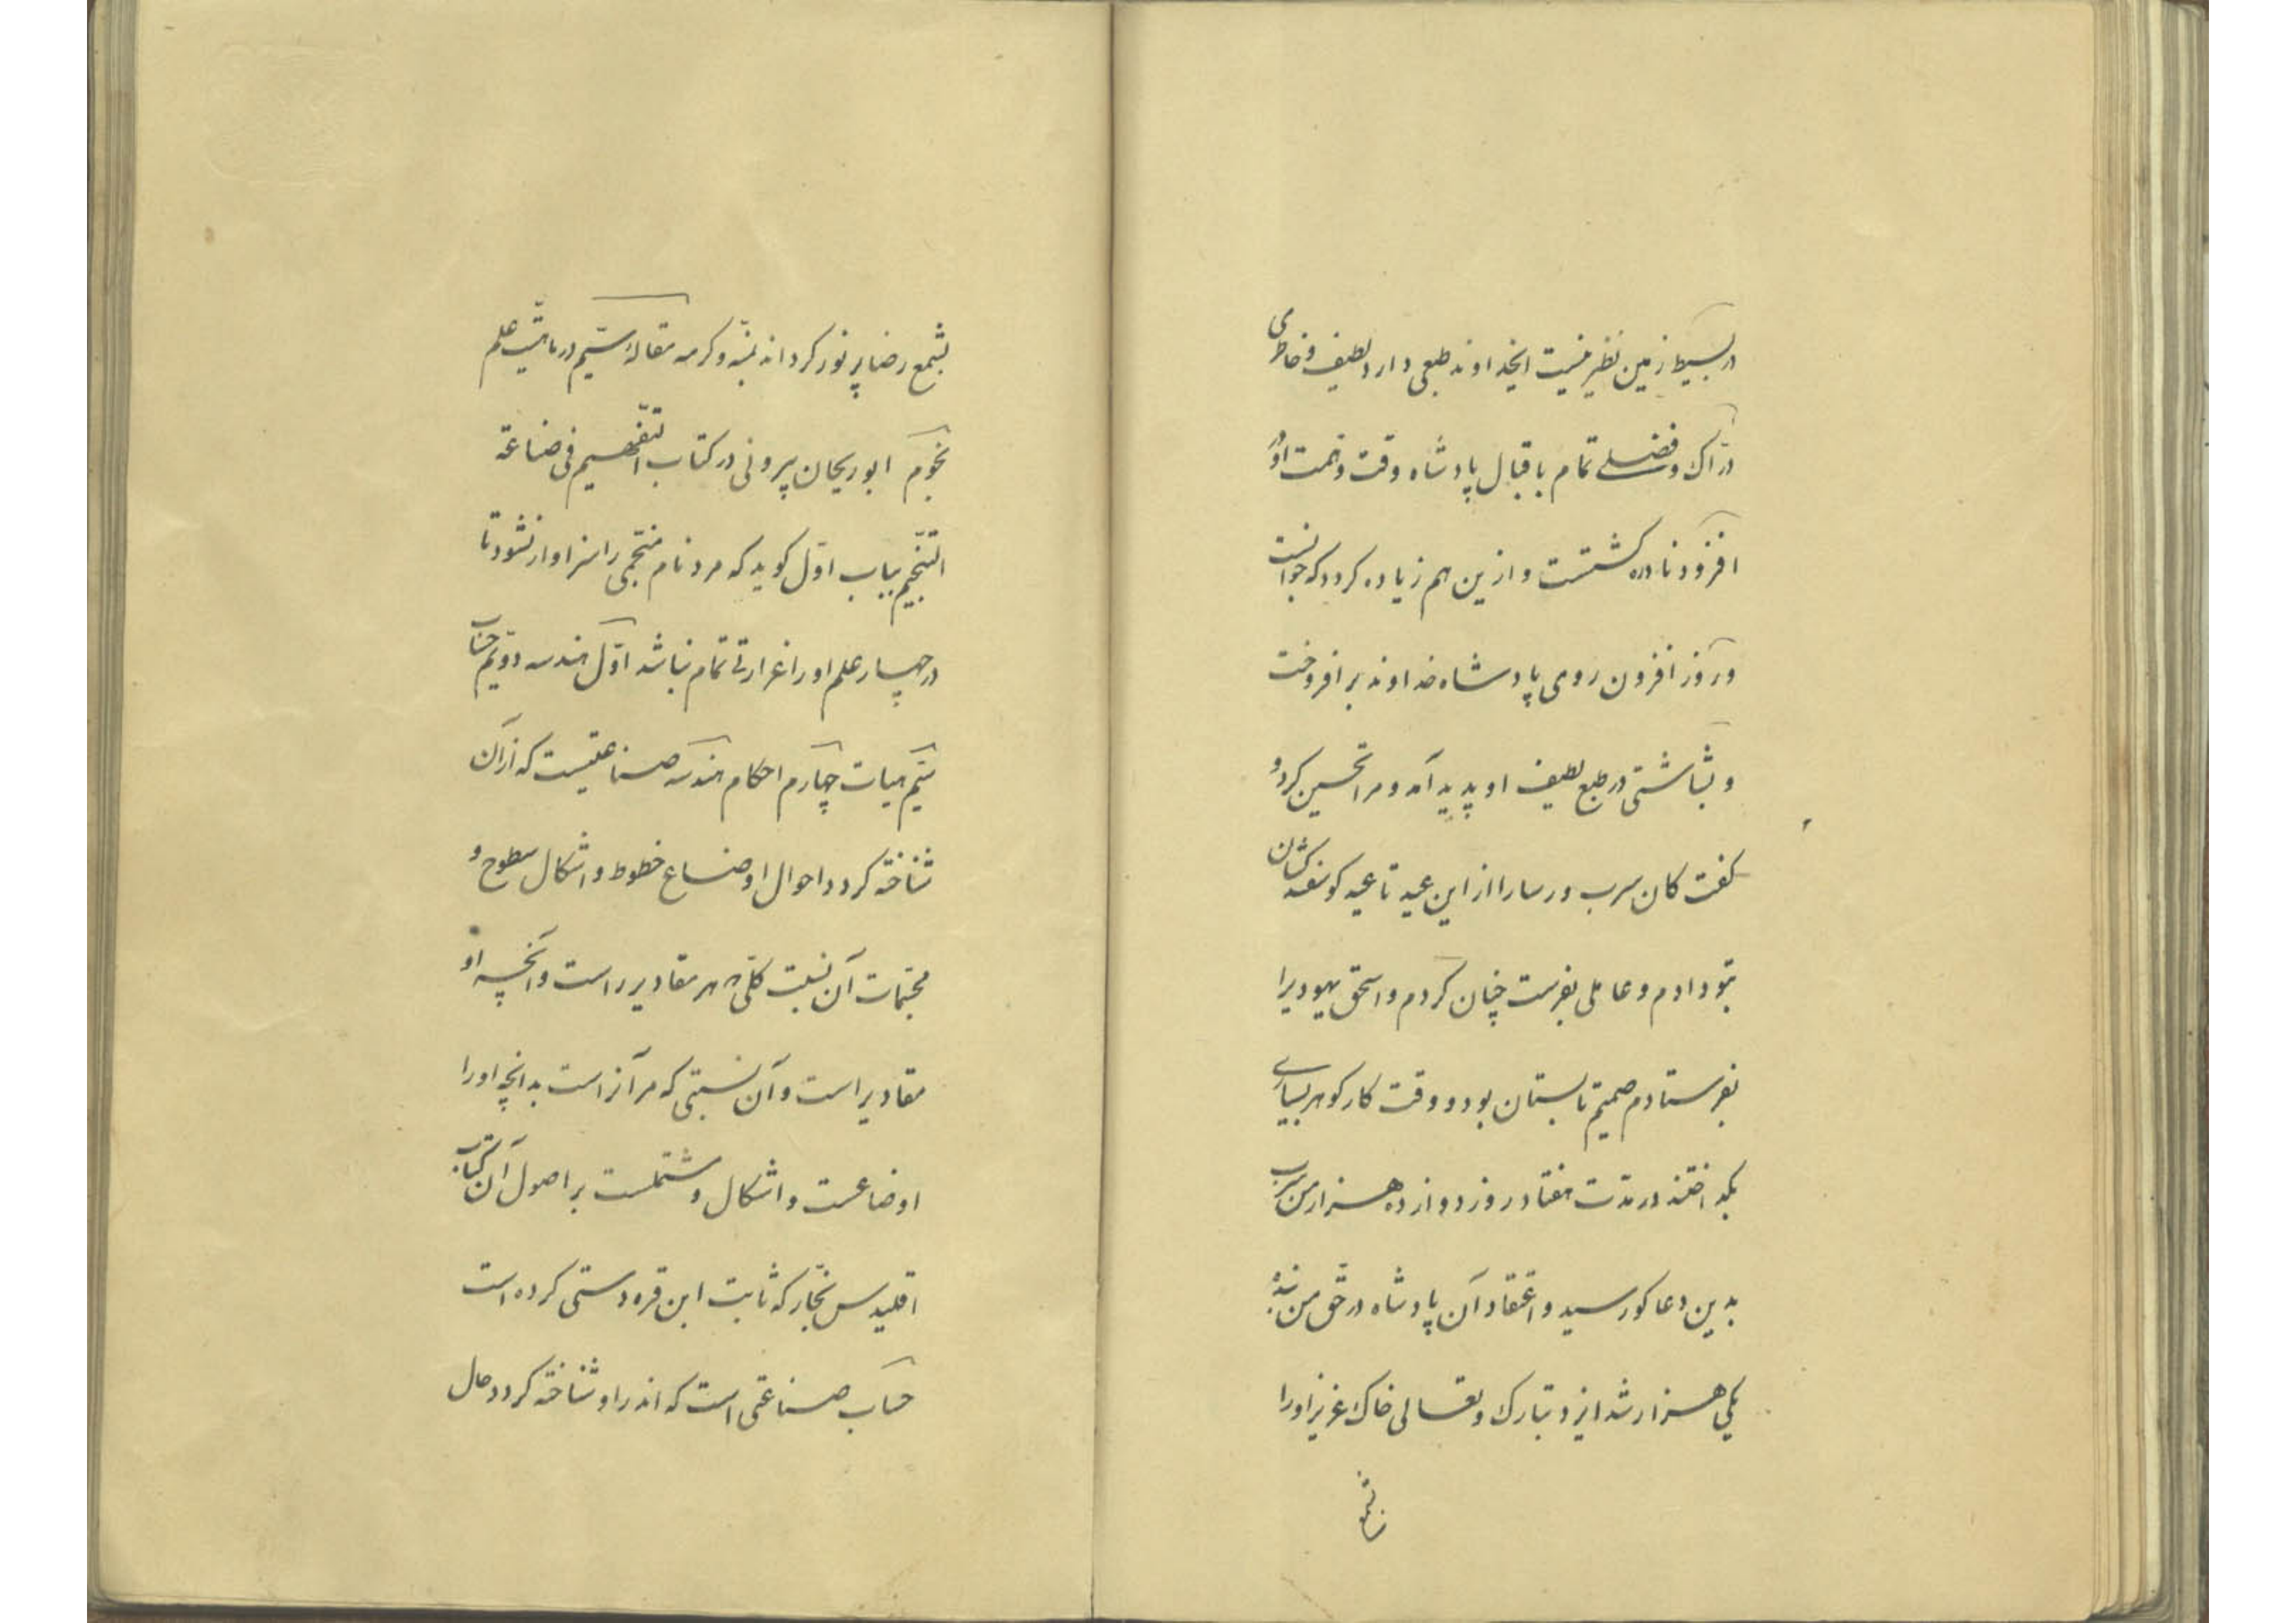 در بسیط زمین نظیر نیست ایخداوند طبعی دارد لطیف و خاطری
درّاک و فضلے تمام باقبال پادشاه وقت و همت او در
افزود نادره گشتست و ازین هم زیاده کردد که جوانست
و روز افزون روی پادشاه خداوند برافروخت
و بشاشتی در طبع لطیف او پدید آمد و مرا تحسین کرد و
کفت کان سرب ورسا را از این عید تا عید کوسفندکشان
بتو دادم و عاملی بفرست چنان کردم و اسحق یهودیرا
بفرستادم صمیم تابستان بود و وقت کار کوهر بسیارے
بکداختند در مدّت هفتاد روز دوازده هزار من سرب
بدین دعاکو رسید و اعتقاد آن پادشاه در حقّ من بنده
یکی هزار شد ایزد تبارک و تعالی خاک عزیز او را
بشمع
بشمع رضا پر نور کرداند بمنّه و کرمه مقالهٔ سیّم در ماهیّت علم
نجوم ابوریحان بیرونی در کتاب التّفهیم فی صناعة
التنّجیم بباب اوّل کوید که مرد نام منجّمی را سزاوار نشود تا
در چهار علم او را غزارتے تمام نباشد اوّل هندسه دویّم حساب
سیّم هیات چهارم احکام هندسه صناعتیست که از آن
شناخته کردد احوال اوضاع خطوط و اشکال سطوح و
مجسّمات آن نسبت کلّی هر مقادیر راست و آنچه او
مقادیر است و آن نسبتی که مر آنراست بدانچه او را
اوضاعست و اشکال و مشتملست بر اصول آن کتاب
اقلیدس نجّار که ثابت ابن قره دستی کرده است
حساب صناعتی است که اندر او شناخته کردد حال